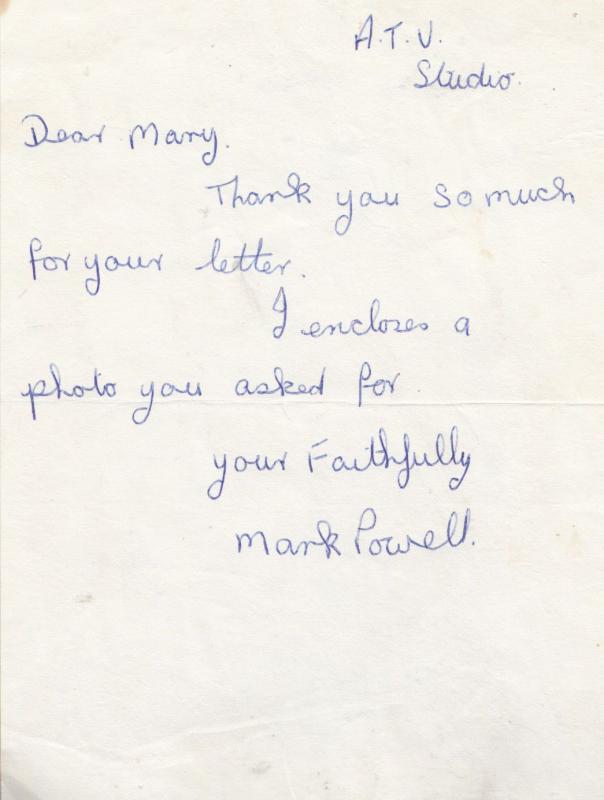 A.T.V.
Studio.
Dear Mary.
Thank you so much
for your letter.
I encloses a
photo you asked for
your Faithfully
Mark Powell.